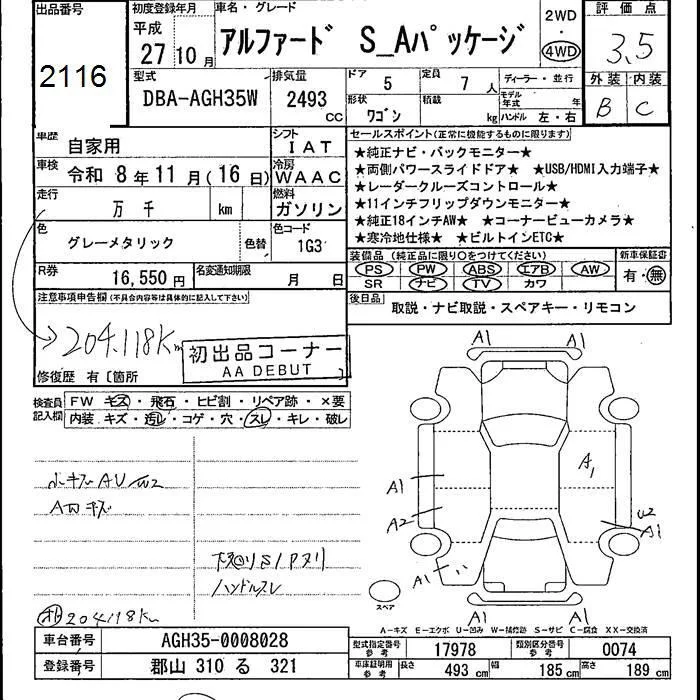 出品番号
2116
初度登録年月
平成
27年 10月
車名・グレード
アルファード S_Aパッケージ
2WD
・
4WD
評価点
3.5
外装 内装
B C
型式
DBA-AGH35W
排気量
2493
CC
ドア 5
定員 7人
形状 ワゴン
積載 kg
ディーラー・並行
モデル年式 年
ハンドル 左・右
車歴
自家用
シフト
IAT
車検
令和 8年 11月(16日)
冷房
WAAC
走行
万 千 km
燃料
ガソリン
色
グレーメタリック
色替
色コード
1G3
R券
16,550円
名変通知期限
月 日
セールスポイント(正常に機能するものに限ります)
★純正ナビ・バックモニター★
★両側パワースライドドア★ ★USB/HDMI入力端子★
★レーダークルーズコントロール★
★11インチフリップダウンモニター★
★純正18インチAW★ ★コーナービューカメラ★
★寒冷地仕様★ ★ビルトインETC★
装備品(純正品に限り○をつけてください)
PS PW ABS エアB AW
SR ナビ TV カワ
新車保証書
有・無
後日品
取説・ナビ取説・スペアキー・リモコン
注意事項申告欄(不具合内容等は具体的に記入して下さい)
204,118Km
初出品コーナー
AA DEBUT
修復歴 有〔箇所
検査員記入欄
FW キズ・飛石・ヒビ割・リペア跡・×要
内装 キズ・汚レ・コゲ・穴・スレ・キレ・破レ
小キズ AU/W2
AW キズ
ハンドルスレ
204118Km
A1 A1
A1
A2
A1
A1
U2
A1
A1 A1
スペア
A-キズ E-エクボ U-凹み W-補修跡 S-サビ C-腐食 XX-交換済
車台番号
AGH35-0008028
登録番号
郡山 310 る 321
型式指定番号 参考
17978
類別区分番号 参考
0074
車庫証明用 参考
長さ 493 cm
幅 185 cm
高さ 189 cm